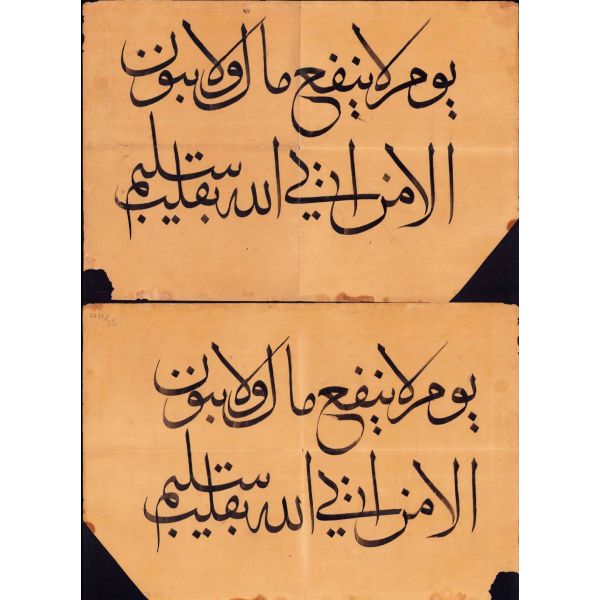 يوم لا ينفع مال ولا بنون
الا من اتى الله بقلب سليم
يوم لا ينفع مال ولا بنون
الا من اتى الله بقلب سليم